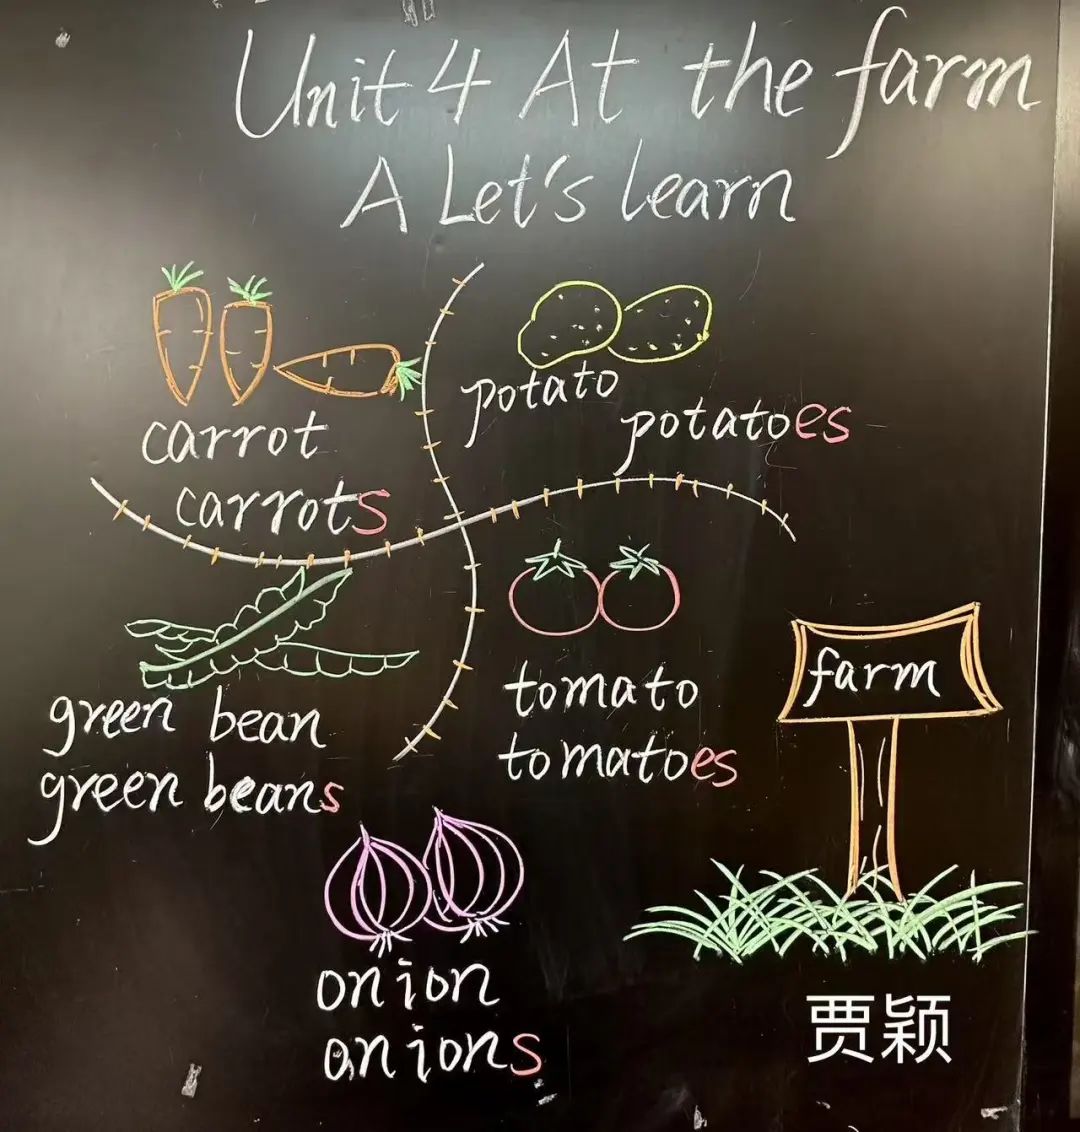 Unit 4 At the farm
A Let's learn
carrot
carrots
potato
potatoes
green bean
green beans
tomato
tomatoes
farm
onion
anions
贾颖